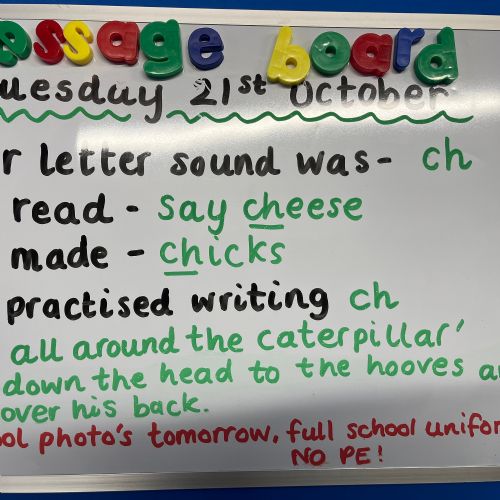 essage board
uesday 21st October
r letter sound was- ch
read - say cheese
made - chicks
practised writing ch
all around the caterpillar'
down the head to the hooves a
over his back.
ool photo's tomorrow, full school unifor
NO PE!